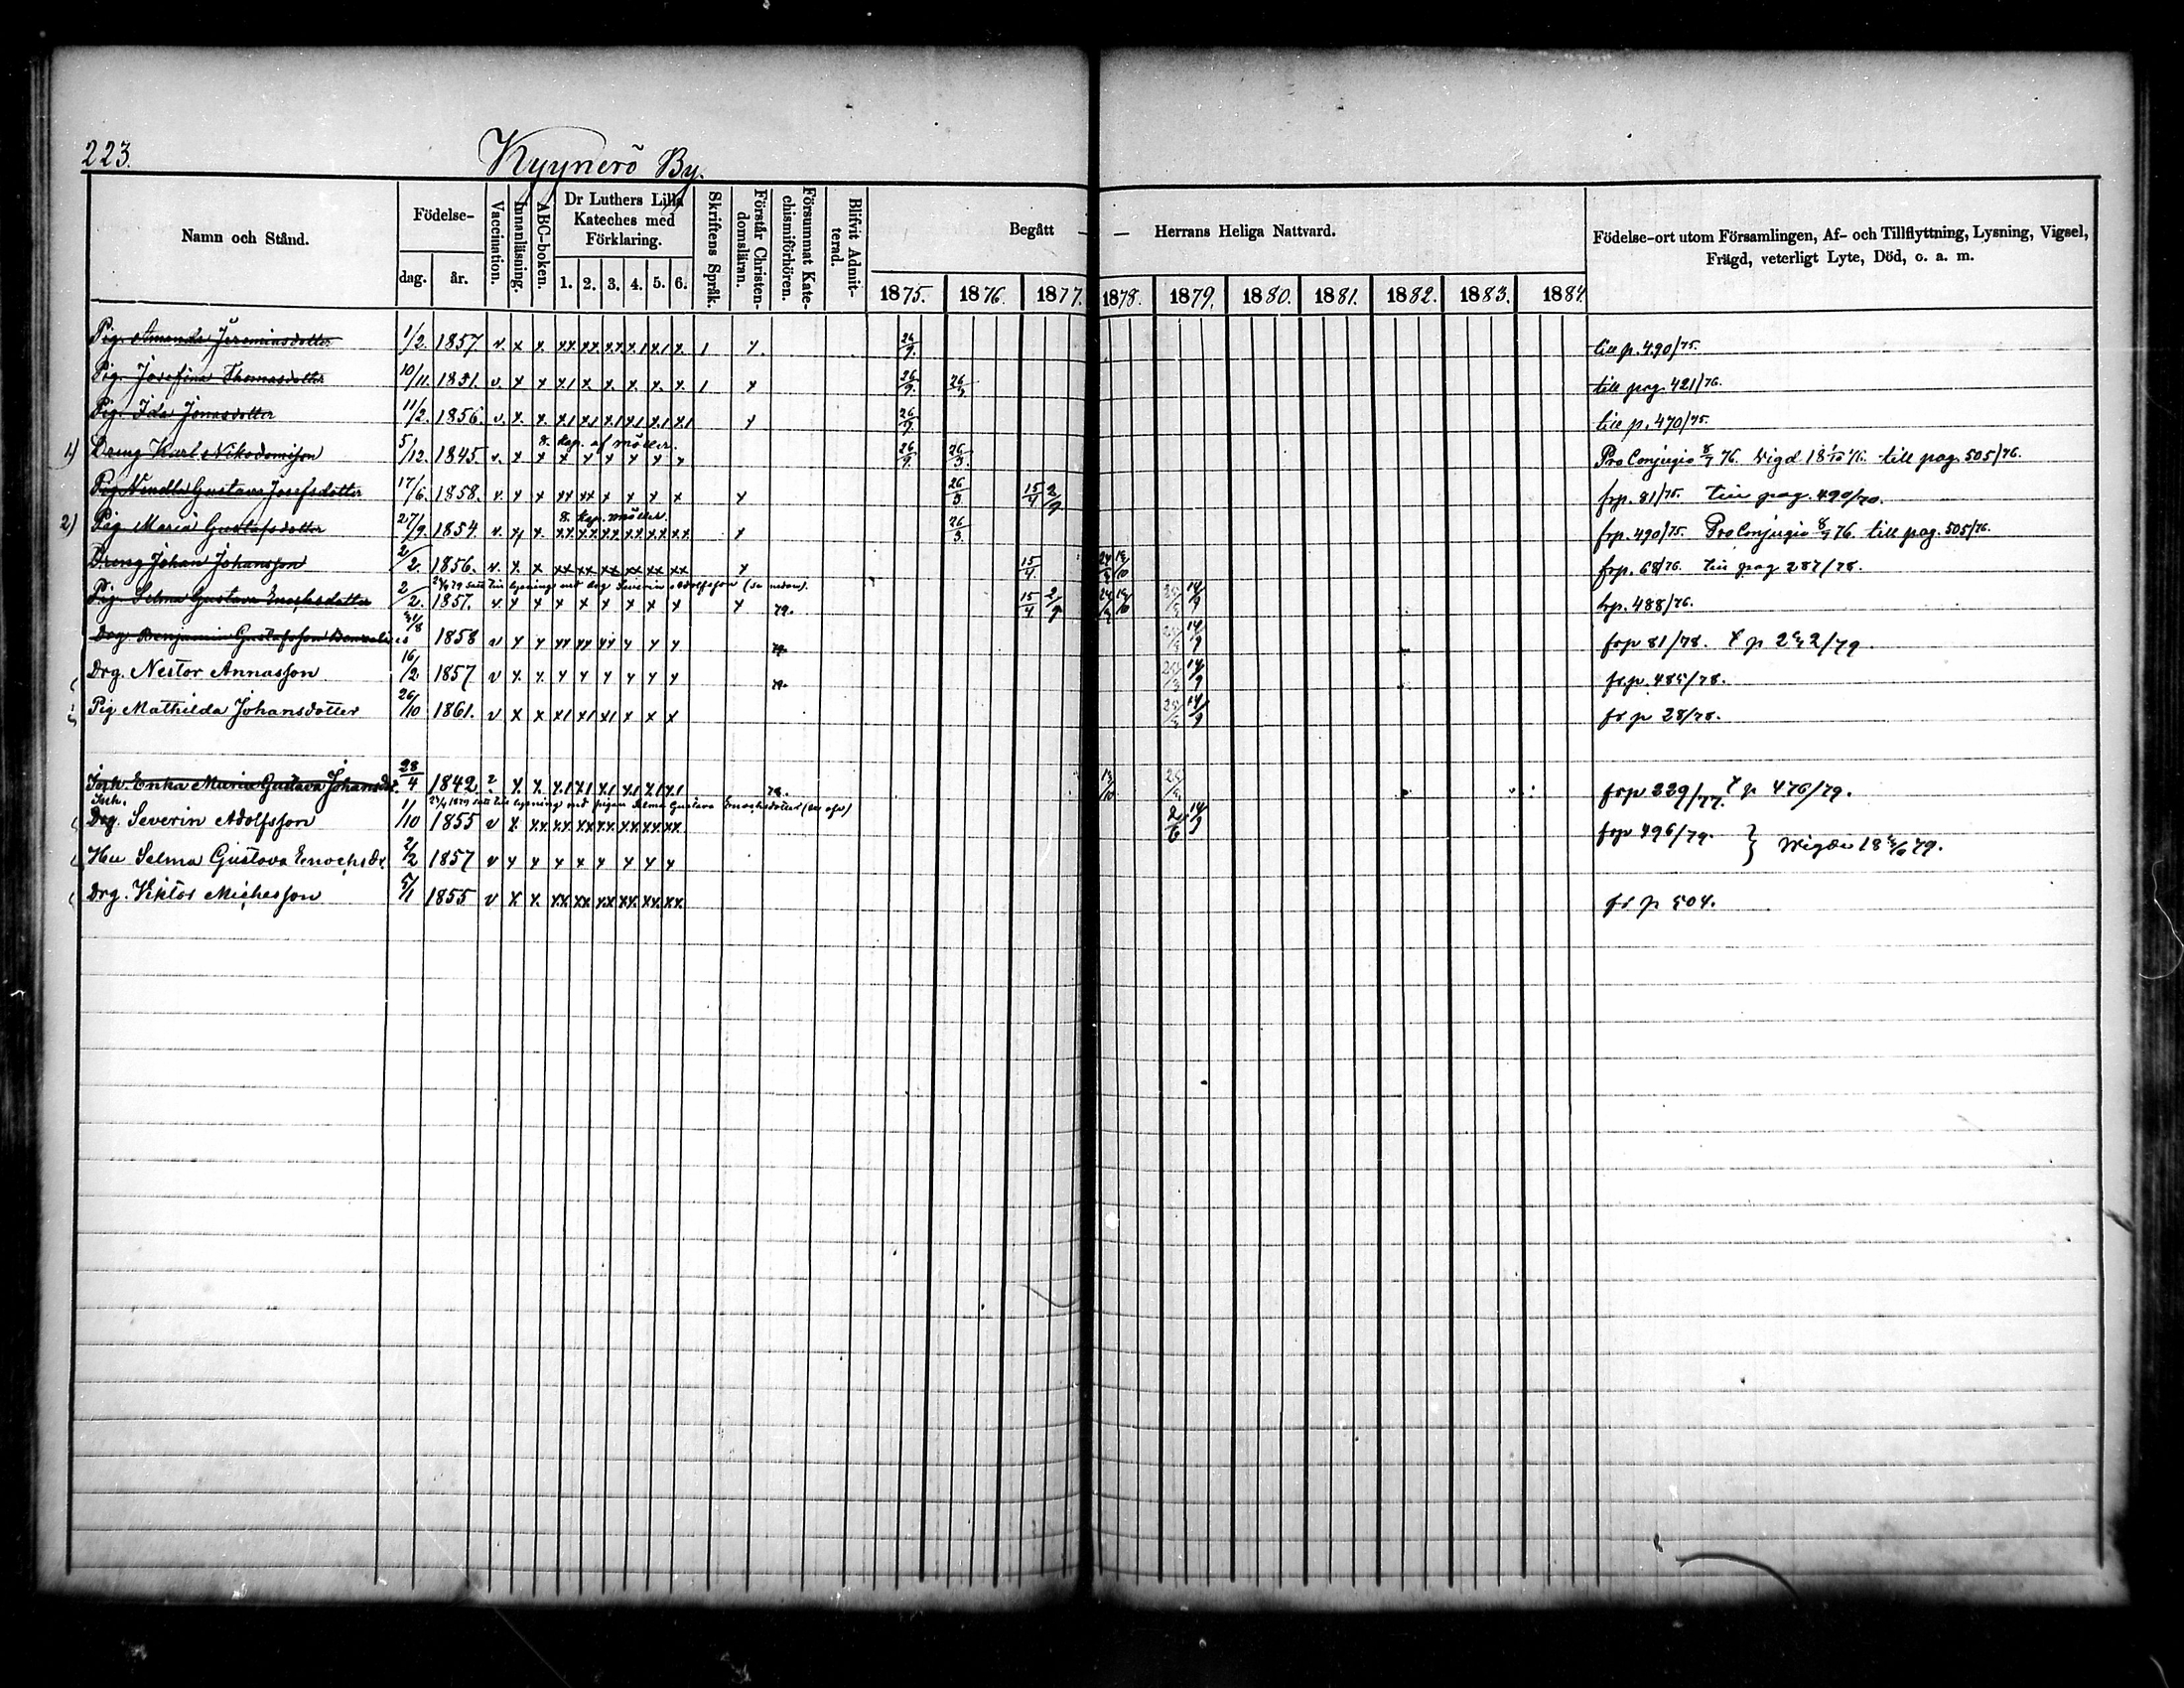 223.
Kyynerö By.
Namn och Stånd. Födelse- dag. år. Vaccination. Innanläsning. ABC-boken. Dr Luthers Lilla Kateches med Förklaring. 1. 2. 3. 4. 5. 6. Skriftens Språk. Förstår Christendomsläran. Försummat Katechismiförhören. Blifvit Admitterad. Begått — — Herrans Heliga Nattvard. Födelse-ort utom Församlingen, Af- och Tillflyttning, Lysning, Vigsel, Frägd, veterligt Lyte, Död, o. a. m.
1875. 1876. 1877. 1878. 1879. 1880. 1881. 1882. 1883. 1884.
Pig. Amanda Jeremiasdotter 1/2. 1857 v. x x. xx xx. xx x1 x1 x. 1 x. 26/9. till p. 490/75.
Pig. Josefina Thomasdotter 10/11. 1851. v. x x x1 x. x. x. x. x. 1 x 26/9. 26/3 till pag. 421/76.
Pig. Ida Jonasdotter 11/2. 1856. v. x. x. x1 x1 x1 x1 x1 x1 x 26/9. till p. 470/75.
8. Kap. af möller.
1) Dreng Karl Nikodemisson 5/12. 1845. v. x x x x x x x x 26/9. 26/3. Pro Conjugio 8/7 76. Vigd 18 1/10 76. till pag. 505/76.
Pig Nendla Gustava Josefsdotter 17/6. 1858. v. x x xx xx x x x x x 26/3. 15/4 2/9 frp. 81/75. till pag. 490/70.
8. Kap. möller.
2) Pig. Maria Gustafsdotter 27/9. 1854. v. x x. xx xx xx xx xx xx x 26/3. frp. 490/75. Pro Conjugio 8/7 76. till pag. 505/76.
Dreng Johan Johansson 2/2. 1856. v. x x xx xx xx xx xx xx x 15/4. frp. 68/76. till pag 287/78.
satt till lysning med drg Severin Adolfsson (se nedan).
Pig. Selma Gustava Enochsdotter 2/2. 1857. v x x x x x x x x x 79. 15/4 2/9 14/9 frp. 488/76.
Drg. Benjamin Gustafsson 1858 v x x xx xx xx x x x 79. 14/9 frp 81/78.
Drg. Nestor Annasson 16/2. 1857 v x x. x x x x x x 79. 14/9 fr.p. 485/78.
Pig Mathilda Johansdotter 26/10 1861. v x x x1 x1 x1 x x x 14/9 fr p 28/78.
Inh. Enka Maria Gustava Johansdr 28/4 1842. ? x x. x1 x1 x1 x1 x1 x1 78. frp 339/77. p 476/79.
Inh. satt till lysning med pigan Selma Gustava Enochsdotter (se ofvan)
Drg. Severin Adolfsson 1/10 1855 v x xx xx xx xx xx xx xx 2/6 14/9 frp 496/79.
Hu Selma Gustava Enochsdr. 2/2 1857 v x x x x x x x x Vigde 79.
Drg. Viktor Michelsson 5/1 1855 v x x. xx xx xx xx xx xx fr p 504.